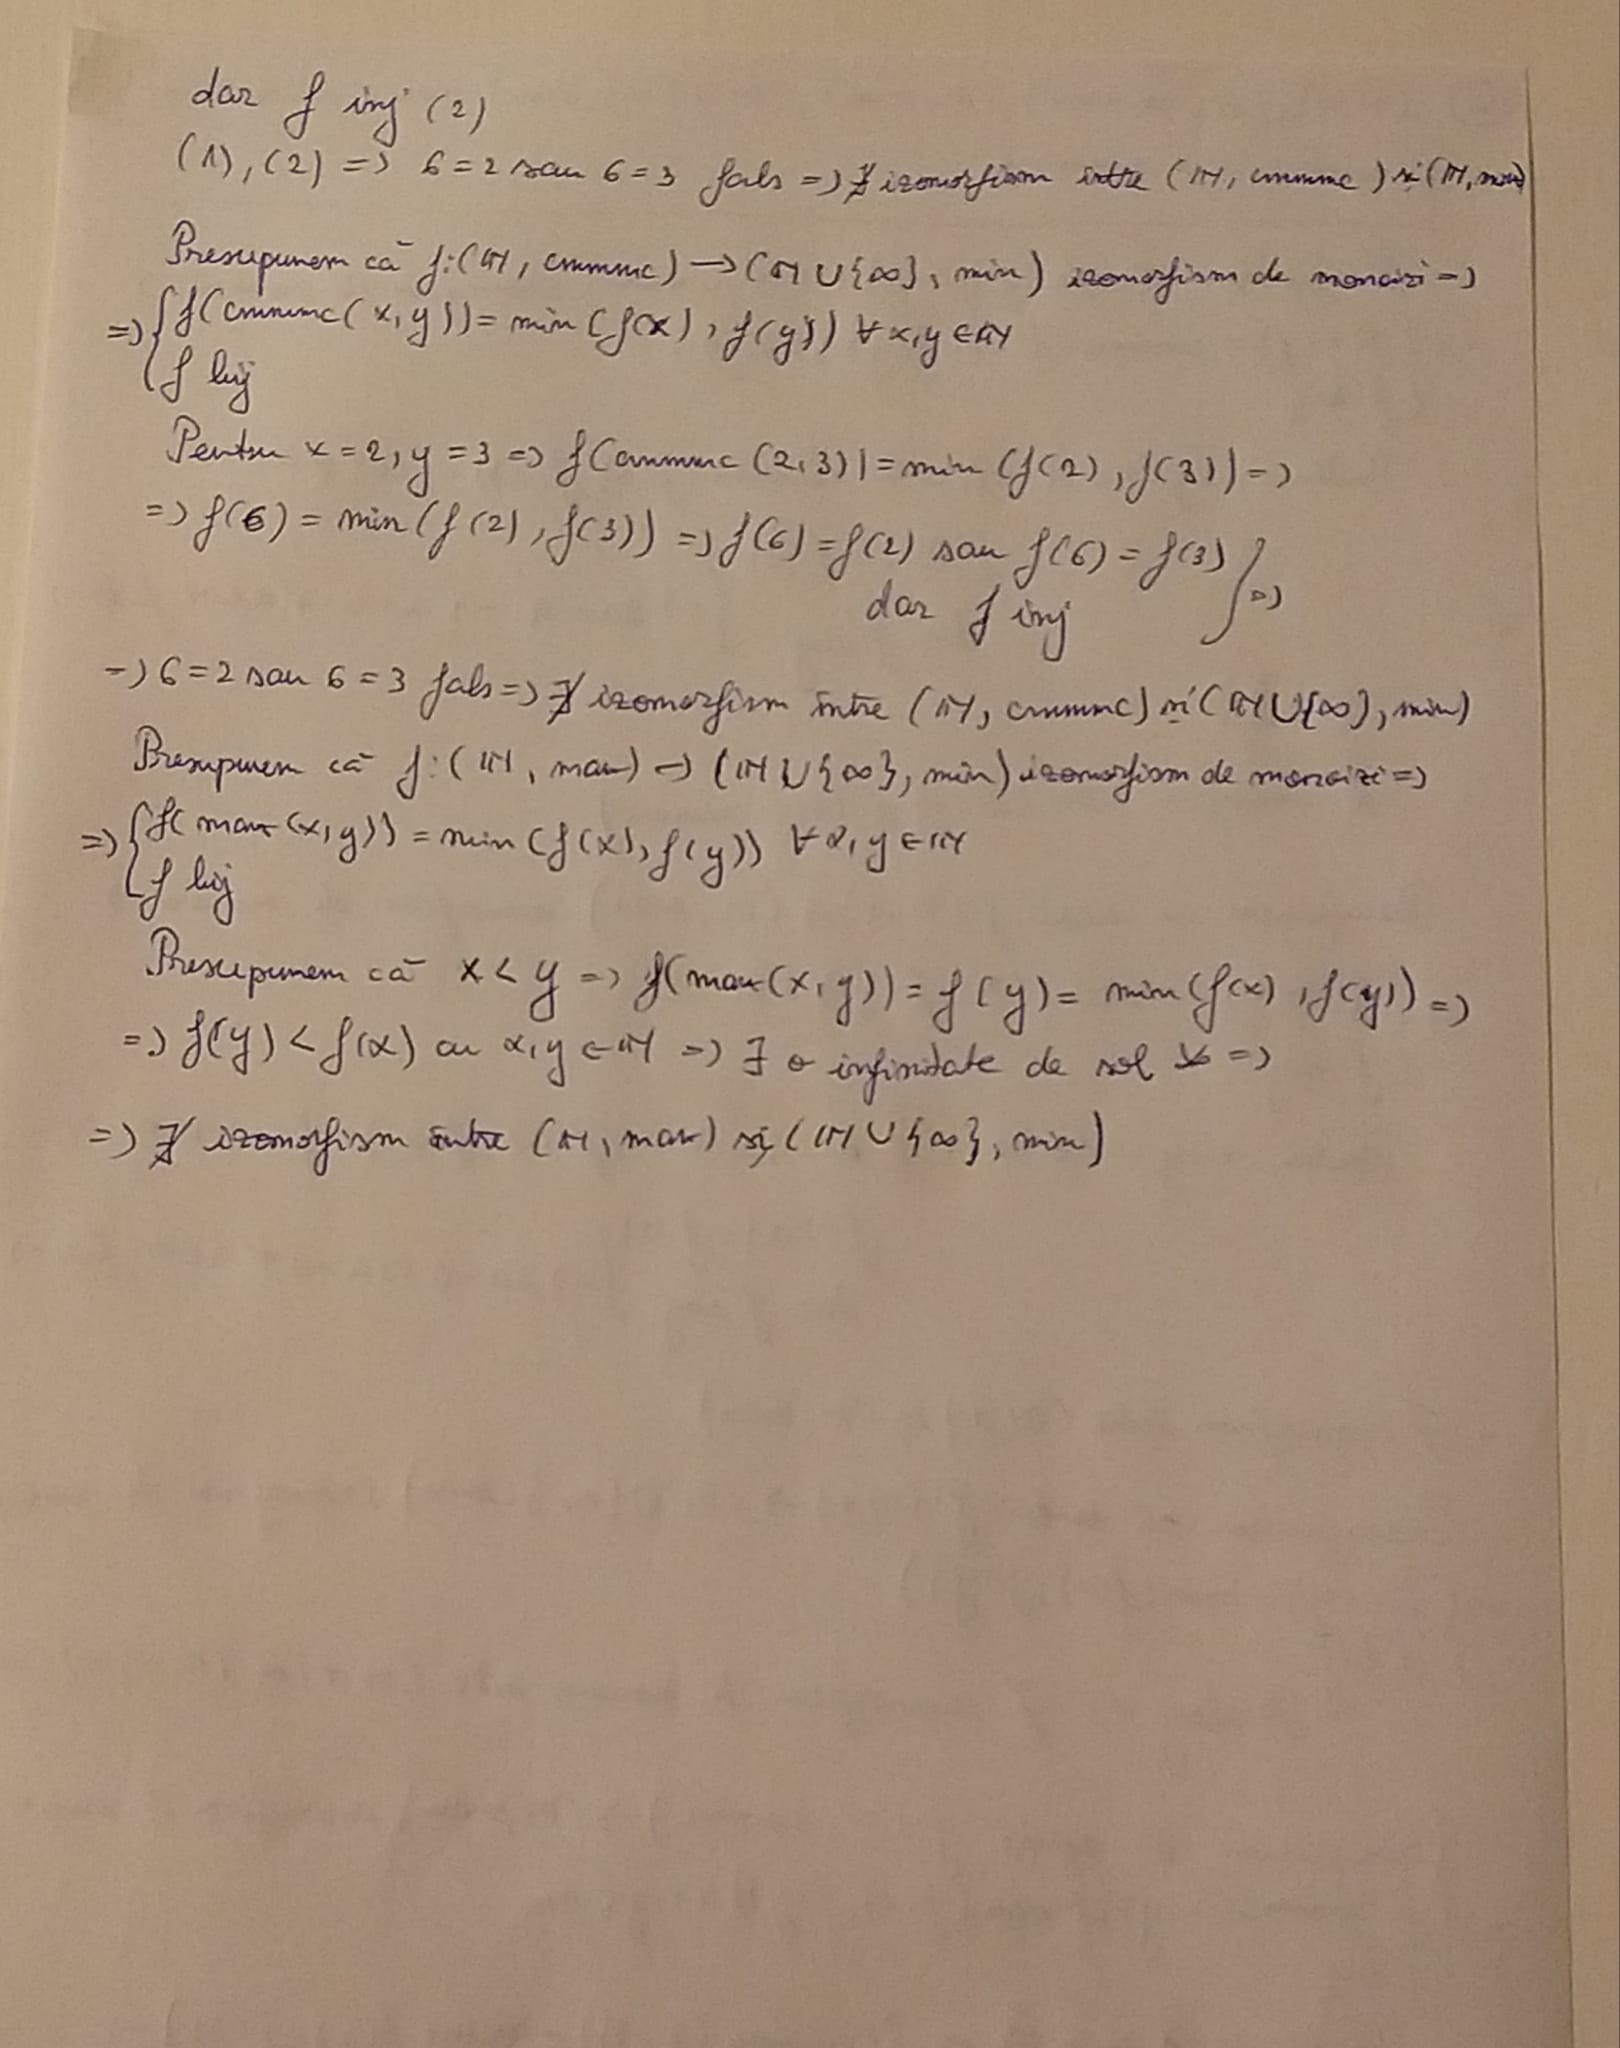 dar f inj (2)
(1), (2) => 6 = 2 sau 6 = 3 fals => ∄ izomorfism între (ℕ, cmmmc) și (ℕ, max)
Presupunem că f: (ℕ, cmmmc) → (ℕ ∪ {∞}, min) izomorfism de monoizi =>
=> { f(cmmmc(x, y)) = min (f(x), f(y)) ∀ x, y ∈ ℕ
f bij
Pentru x = 2, y = 3 => f(cmmmc (2, 3)) = min (f(2), f(3)) =>
=> f(6) = min (f(2), f(3)) => f(6) = f(2) sau f(6) = f(3) } =>
dar f inj
=> 6 = 2 sau 6 = 3 fals => ∄ izomorfism între (ℕ, cmmmc) și (ℕ ∪ {∞}, min)
Presupunem că f: (ℕ, max) → (ℕ ∪ {∞}, min) izomorfism de monoizi =>
=> { f( max (x, y)) = min (f(x), f(y)) ∀ x, y ∈ ℕ
f bij
Presupunem că x < y => f(max (x, y)) = f(y) = min (f(x), f(y)) =>
=> f(y) < f(x) cu x, y ∈ ℕ => ∃ o infinitate de sol =>
=> ∄ izomorfism între (ℕ, max) și (ℕ ∪ {∞}, min)